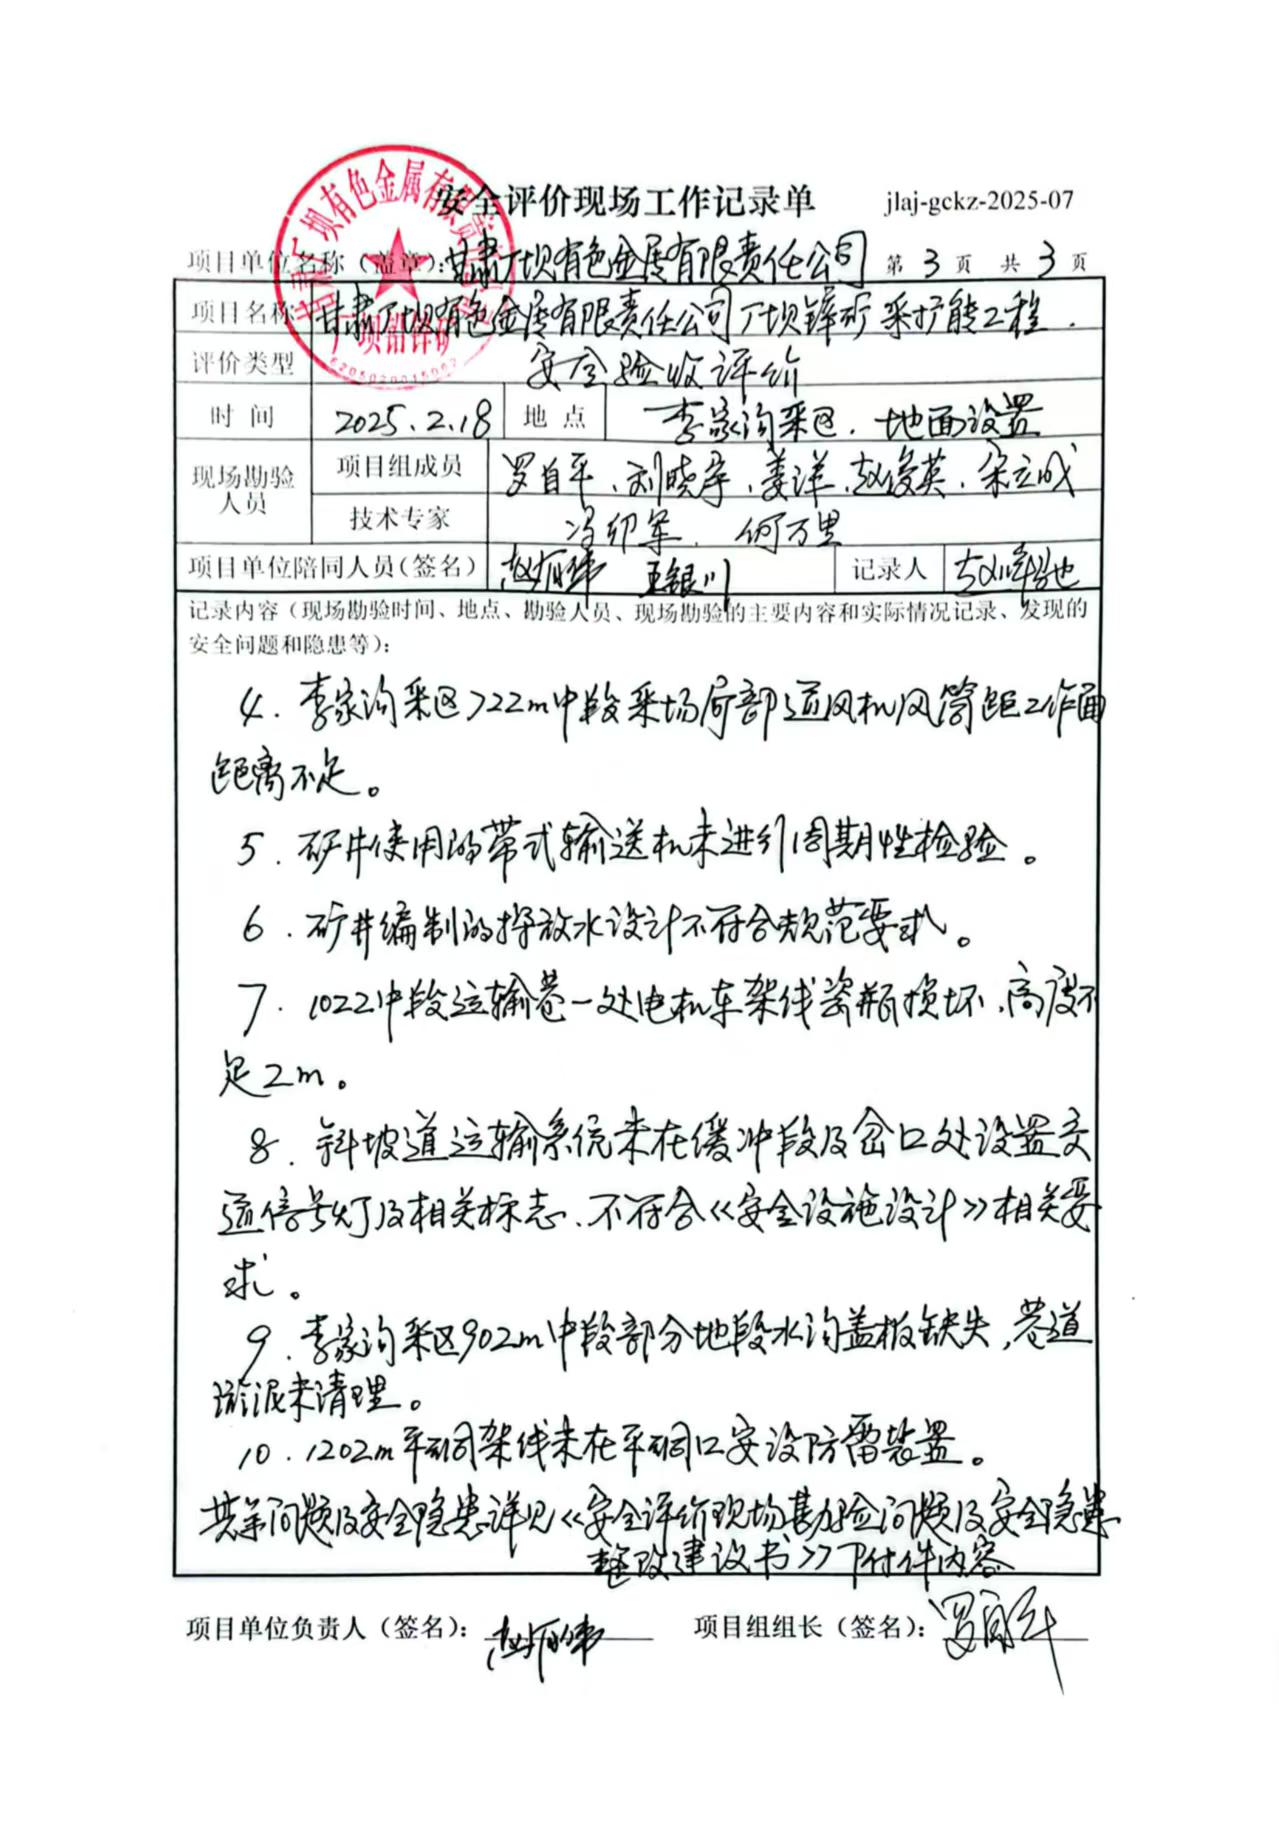 安全评价现场工作记录单 jlaj-gckz-2025-07
项目单位名称（盖章）：甘肃厂坝有色金属有限责任公司 第 3 页 共 3 页
甘肃厂坝有色金属有限责任公司
厂坝铅锌矿
项目名称 甘肃厂坝有色金属有限责任公司厂坝锌矿采扩能工程.
评价类型 安全验收评价
时 间 2025.2.18 地 点 李家沟采区、地面设置
现场勘验人员 项目组成员 罗自平、刘晓宇、姜洋、赵俊英、宋立成
技术专家 冯印军、何万里
项目单位陪同人员（签名） 王银川 记录人
记录内容（现场勘验时间、地点、勘验人员、现场勘验的主要内容和实际情况记录、发现的
安全问题和隐患等）：
4.李家沟采区722m中段采场局部通风机风筒距工作面
距离不足。
5.矿井使用的带式输送机未进行周期性检验。
6.矿井编制的探放水设计不符合规范要求。
7.1022中段运输巷一处电机车架线瓷瓶损坏、高度不
足2m。
8.斜坡道运输系统未在缓冲段及岔口处设置交
通信号灯及相关标志、不符合《安全设施设计》相关要
求。
9.李家沟采区902m中段部分地段水沟盖板缺失，巷道
淤泥未清理。
10.1202m平硐架线未在平硐口安设防雷装置。
其余问题及安全隐患详见《安全评价现场勘验问题及安全隐患
整改建议书》下附件内容
项目单位负责人（签名）： 项目组组长（签名）：